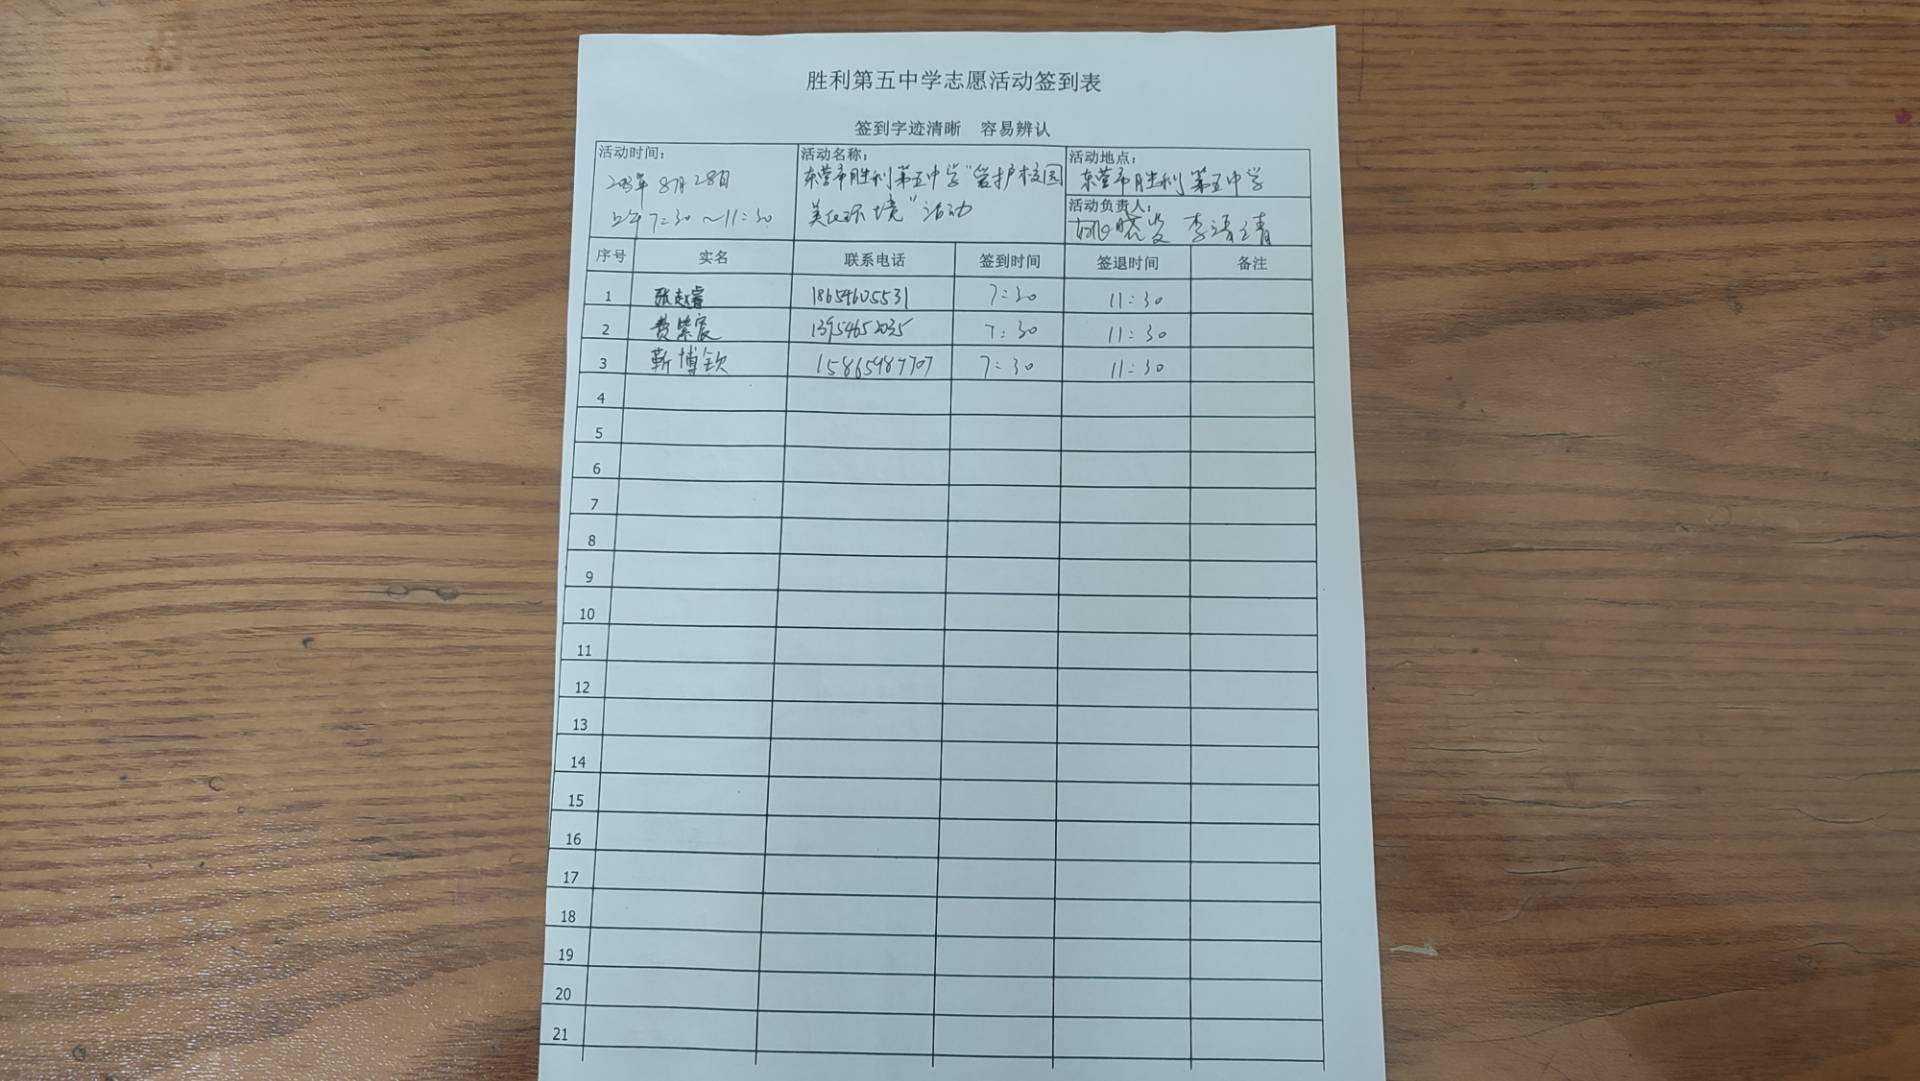 胜利第五中学志愿活动签到表
签到字迹清晰 容易辨认
活动时间： 活动名称： 活动地点：
8月28日 东营市胜利第五中学"爱护校园 东营市胜利第五中学
上午7:30～11:30 美化环境"活动 活动负责人：
李清靖
序号 实名 联系电话 签到时间 签退时间 备注
1 张赵睿 18654605531 7:30 11:30
2 费紫宸 13954652035 7:30 11:30
3 靳博钦 15865987707 7:30 11:30
4
5
6
7
8
9
10
11
12
13
14
15
16
17
18
19
20
21